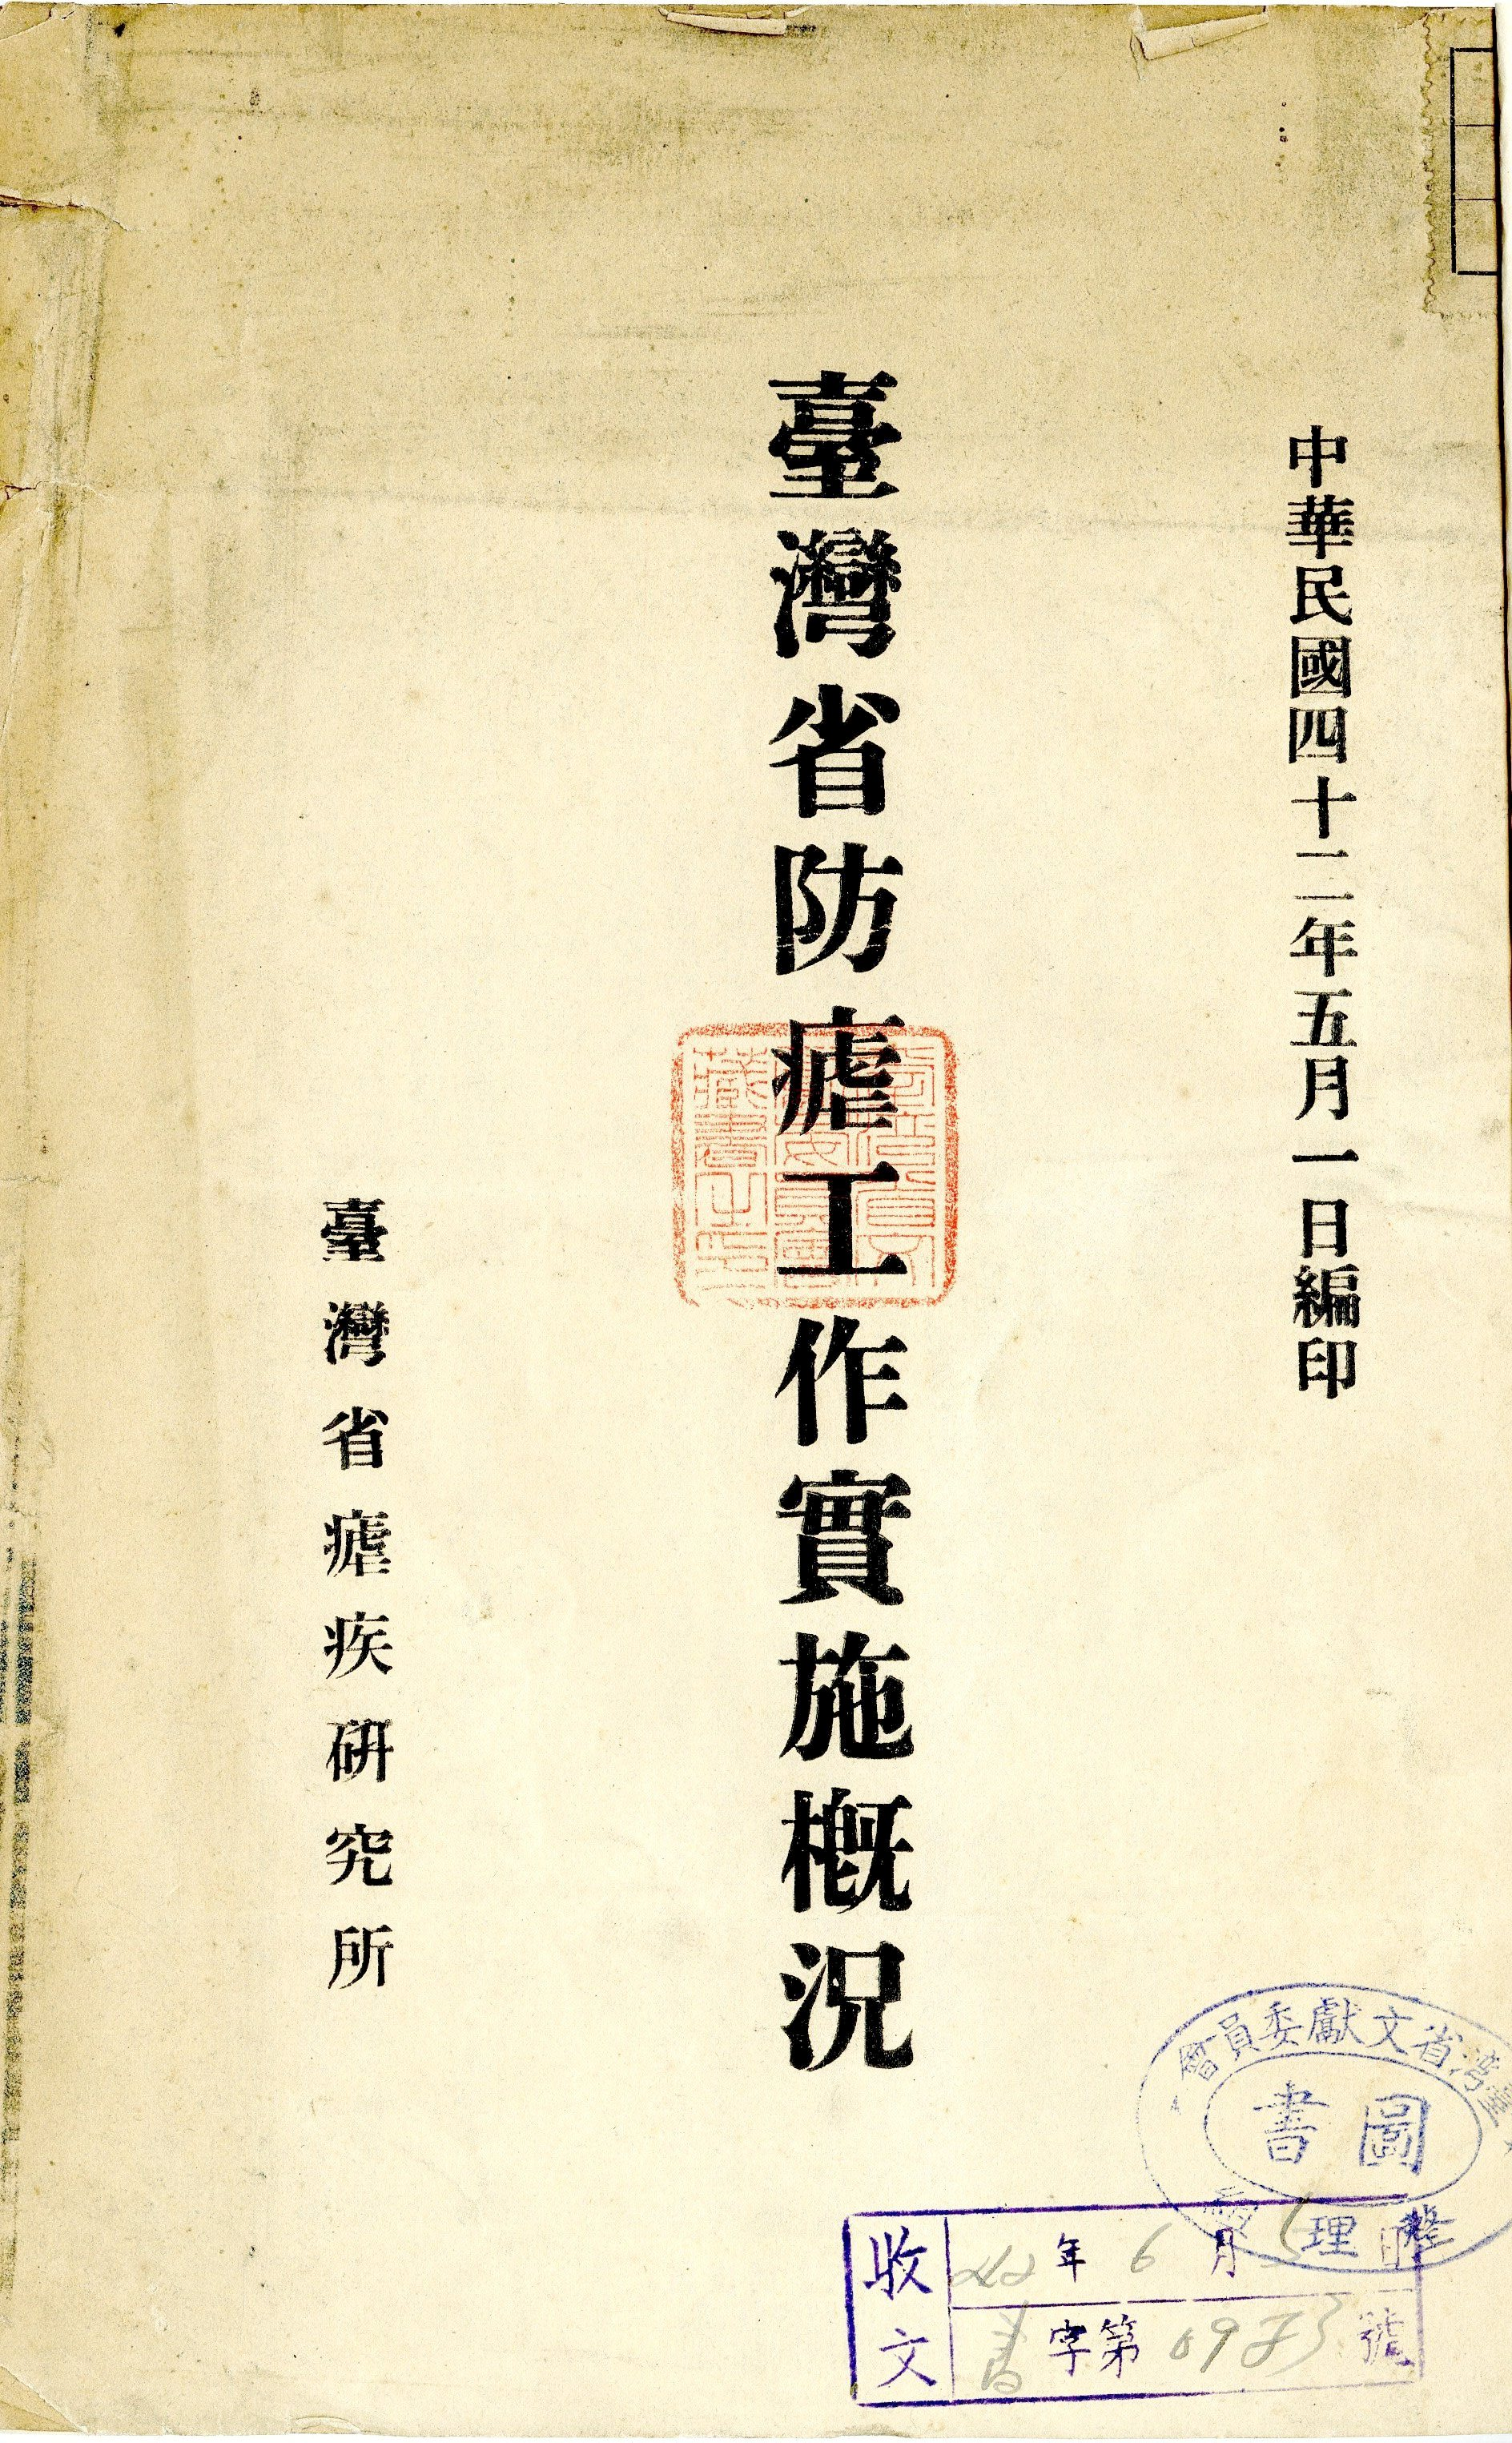 中華民國四十二年五月一日編印
臺灣省防瘧工作實施概況
臺灣省瘧疾研究所
臺灣省文獻委員會
圖書
整理
收文
42年6月 日
字第 號